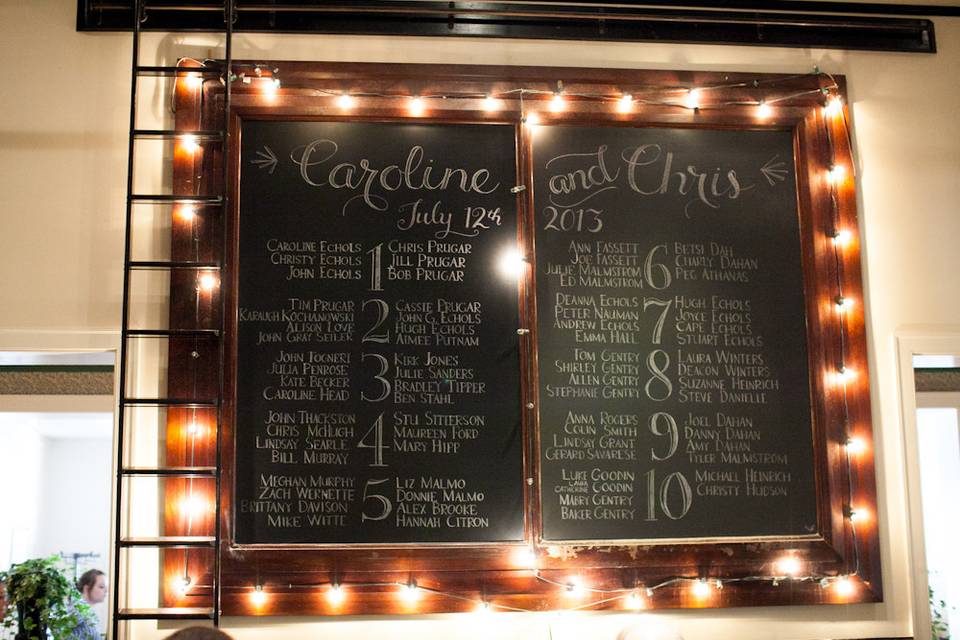 Caroline
July 12th
CAROLINE ECHOLS
CHRISTY ECHOLS
JOHN ECHOLS
1
CHRIS PRUGAR
JILL PRUGAR
BOB PRUGAR
TIM PRUGAR
KARAUGH KOCHANOWSKI
ALISON LOVE
JOHN GRAY SEILER
2
CASSIE PRUGAR
JOHN G. ECHOLS
HUGH ECHOLS
AIMEE PUTNAM
JOHN TOGNERI
JULIA PENROSE
KATE BECKER
CAROLINE HEAD
3
KIRK JONES
JULIE SANDERS
BRADLEY TIPPER
BEN STAHL
JOHN THACKSTON
CHRIS MCHUGH
LINDSAY SEARLE
BILL MURRAY
4
STU SITTERSON
MAUREEN FORD
MARY HIPP
MEGHAN MURPHY
ZACH WERNETTE
BRITTANY DAVISON
MIKE WITTE
5
LIZ MALMO
DONNIE MALMO
ALEX BROOKE
HANNAH CITRON
and Chris
2013
ANN FASSETT
JOE FASSETT
JULIE MALMSTROM
ED MALMSTROM
6
BETSI DAH
CHARLY DAHAN
PEG ATHANAS
DEANNA ECHOLS
PETER NAUMAN
ANDREW ECHOLS
EMMA HALL
7
HUGH ECHOLS
JOYCE ECHOLS
CAPE ECHOLS
STUART ECHOLS
TOM GENTRY
SHIRLEY GENTRY
ALLEN GENTRY
STEPHANIE GENTRY
8
LAURA WINTERS
DEACON WINTERS
SUZANNE HEINRICH
STEVE DANIELLE
ANNA ROGERS
COLIN SMITH
LINDSAY GRANT
GERARD SAVARESE
9
JOEL DAHAN
DANNY DAHAN
AMY DAHAN
TYLER MALMSTROM
LUKE GOODIN
LAURA
CATHERINE GOODIN
MABRY GENTRY
BAKER GENTRY
10
MICHAEL HEINRICH
CHRISTY HUDSON